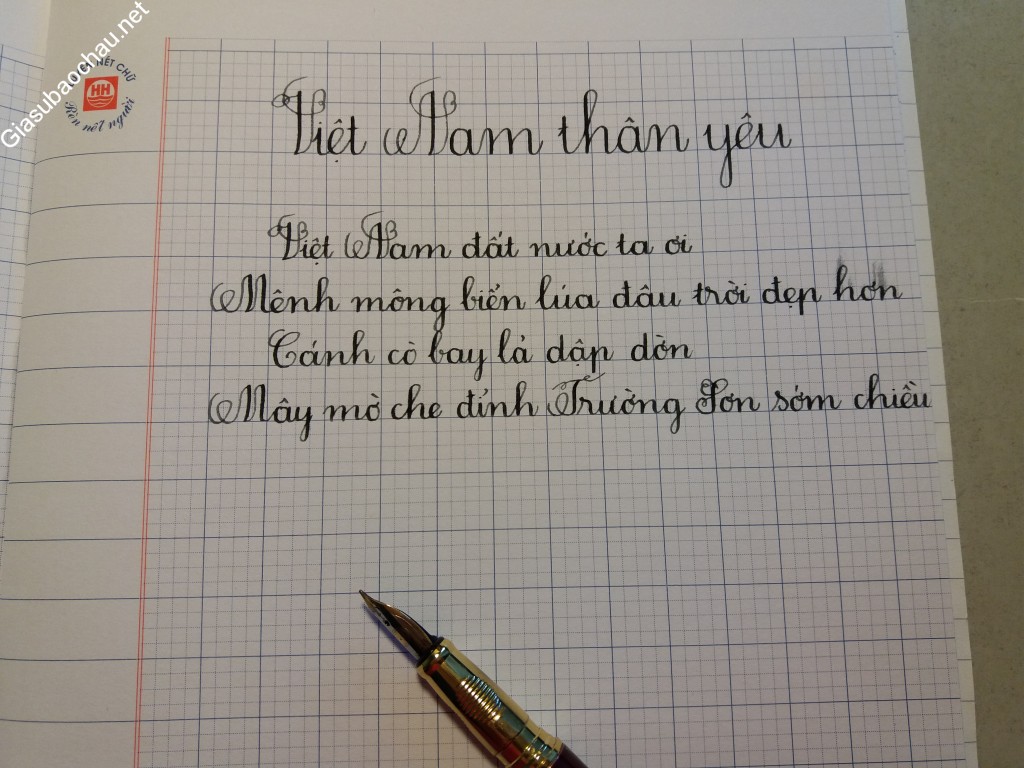 Giasubaochau.net
NÉT CHỮ
HH
Rèn nết người
Việt Nam thân yêu
Việt Nam đất nước ta ơi
Mênh mông biển lúa đâu trời đẹp hơn
Cánh cò bay lả dập dờn
Mây mờ che đỉnh Trường Sơn sớm chiều